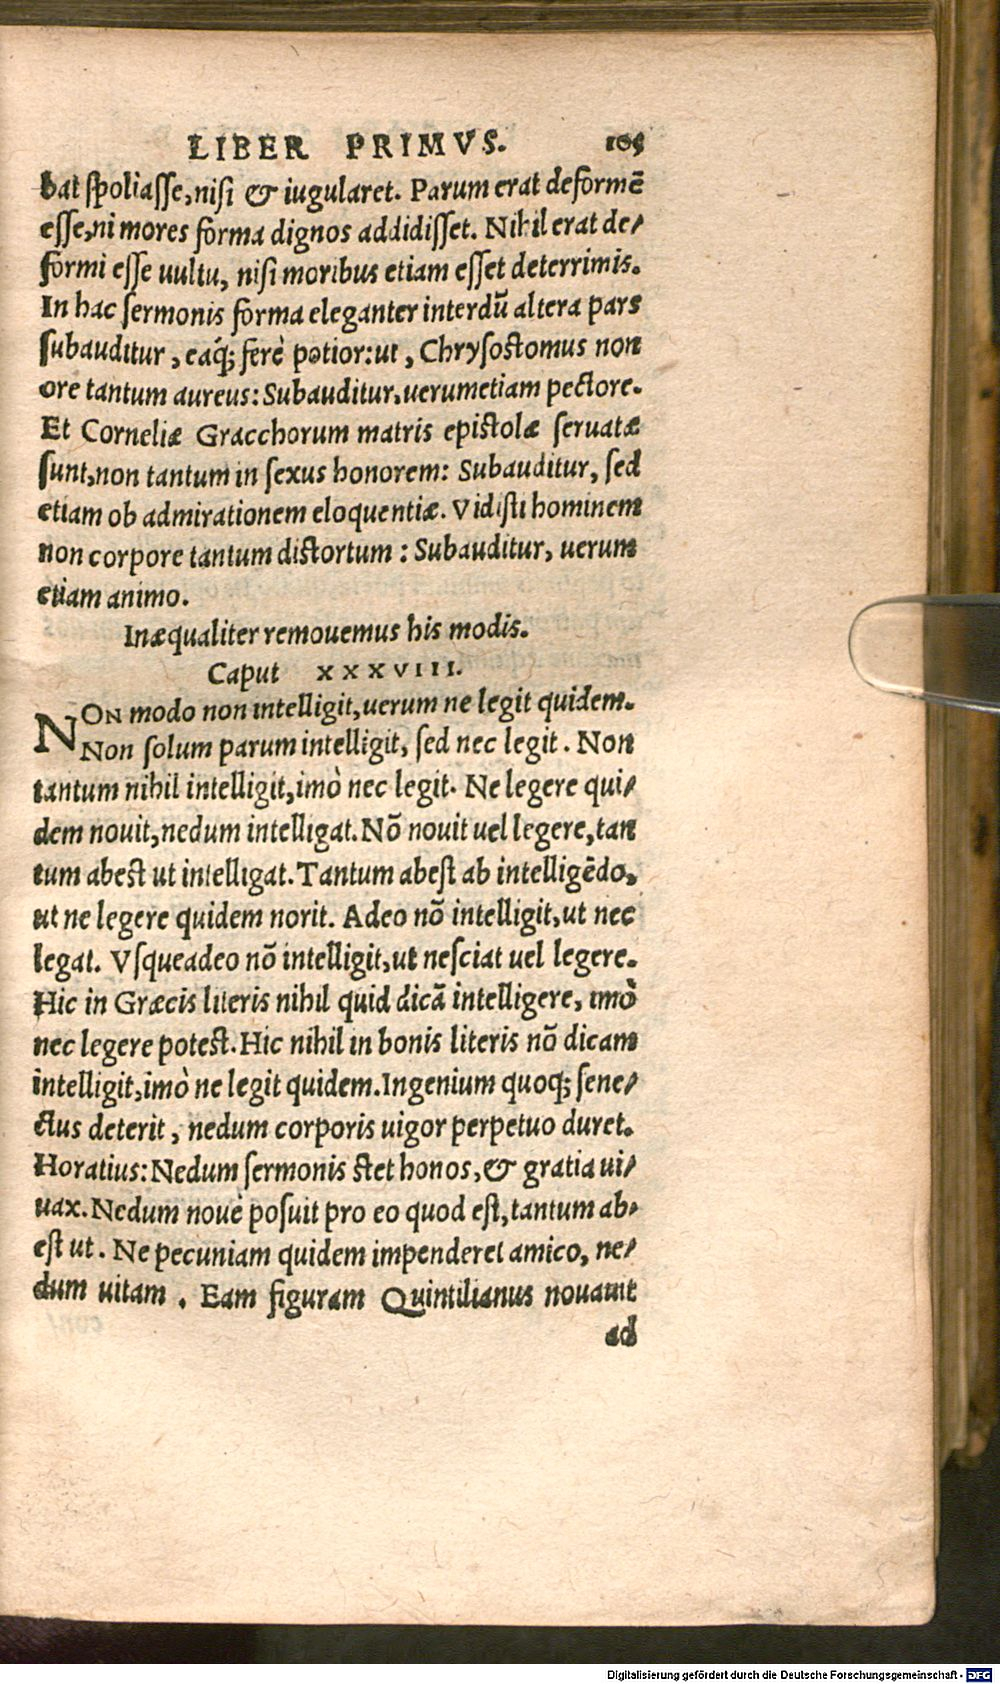 LIBER PRIMVS. 105
bat spoliasse, nisi & iugularet. Parum erat deformē
esse, ni mores forma dignos addidisset. Nihil erat de-
formi esse uultu, nisi moribus etiam esset deterrimis.
In hac sermonis forma eleganter interdū altera pars
subauditur, eaq́; ferè potior: ut, Chrysostomus non
ore tantum aureus: Subauditur, uerumetiam pectore.
Et Corneliæ Gracchorum matris epistolæ seruatæ
sunt, non tantum in sexus honorem: Subauditur, sed
etiam ob admirationem eloquentiæ. Vidisti hominem
non corpore tantum distortum: Subauditur, uerum
etiam animo.
Inæqualiter remouemus his modis.
Caput XXXVIII.
NON modo non intelligit, uerum ne legit quidem.
Non solum parum intelligit, sed nec legit. Non
tantum nihil intelligit, imò nec legit. Ne legere qui-
dem nouit, nedum intelligat. Nō nouit uel legere, tan
tum abest ut intelligat. Tantum abest ab intelligēdo,
ut ne legere quidem norit. Adeo nō intelligit, ut nec
legat. Vsqueadeo nō intelligit, ut nesciat uel legere.
Hic in Græcis literis nihil quid dicā intelligere, imò
nec legere potest. Hic nihil in bonis literis nō dicam
intelligit, imò ne legit quidem. Ingenium quoq; sene-
ctus deterit, nedum corporis uigor perpetuo duret.
Horatius: Nedum sermonis stet honos, & gratia ui-
uax. Nedum nouè posuit pro eo quod est, tantum ab-
est ut. Ne pecuniam quidem impenderet amico, ne-
dum uitam. Eam figuram Quintilianus nouauit
ad
Digitalisierung gefördert durch die Deutsche Forschungsgemeinschaft - DFG